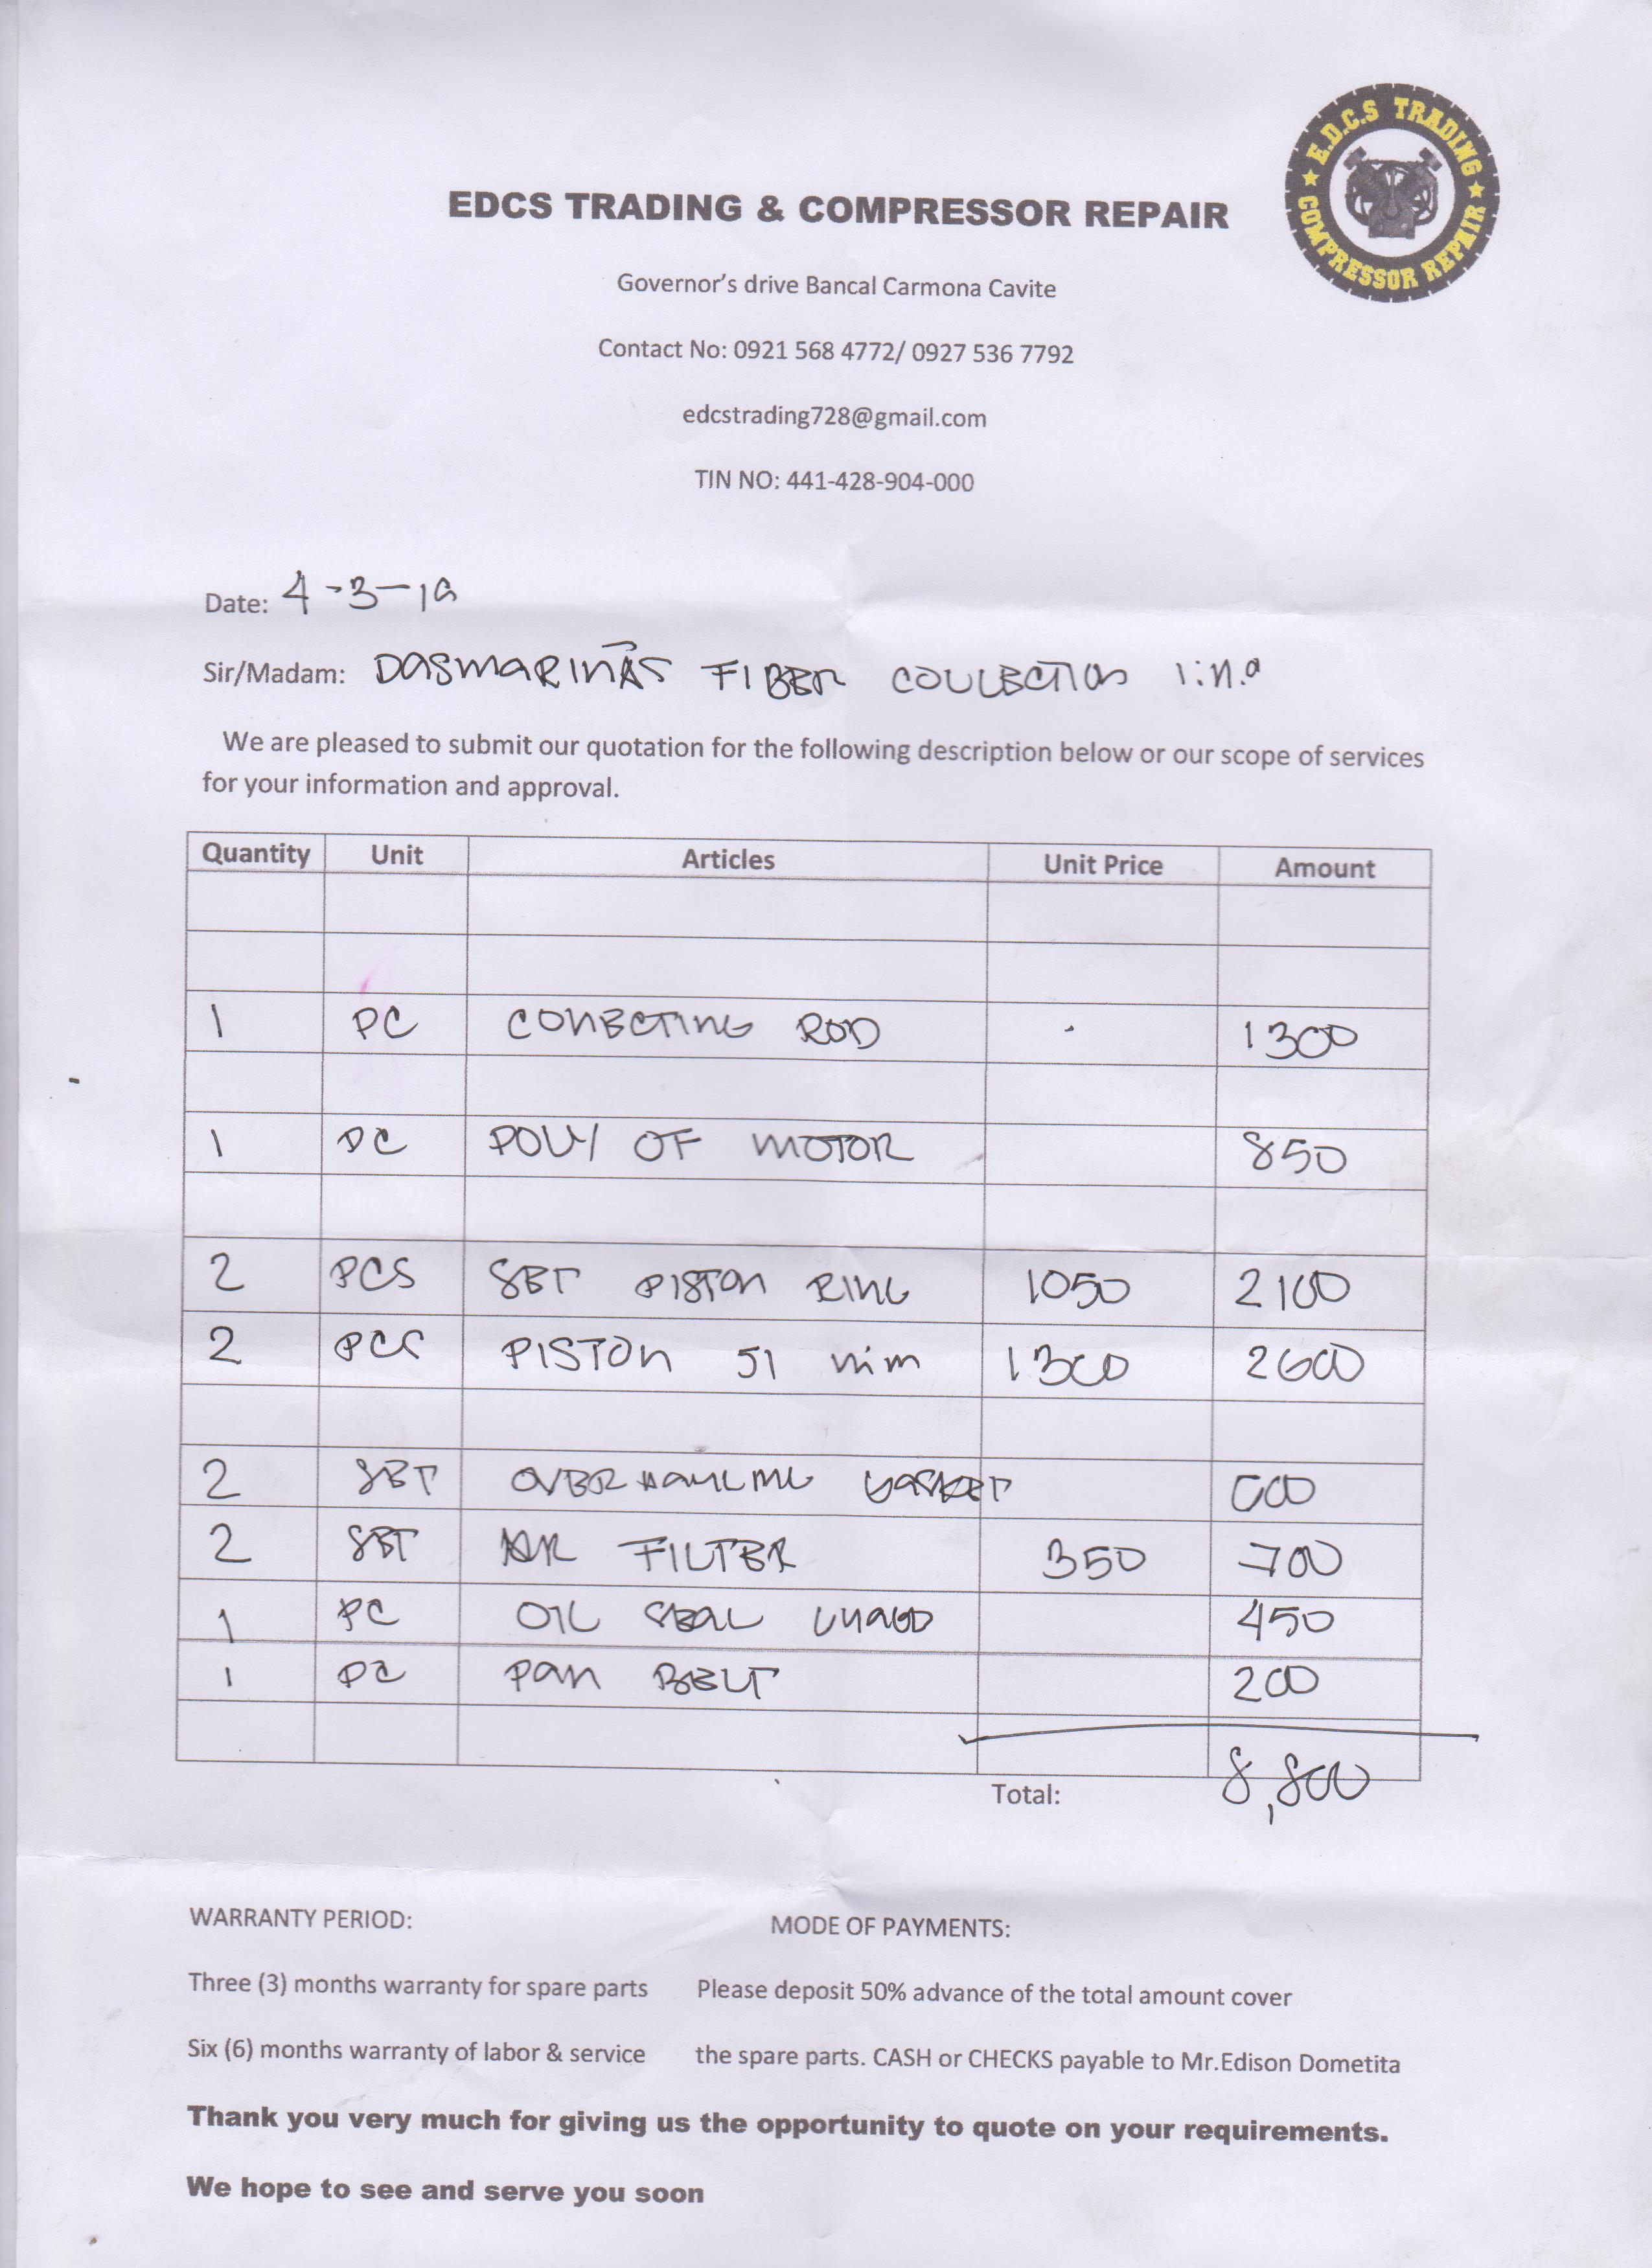 E.D.C.S TRADING
COMPRESSOR REPAIR
EDCS TRADING & COMPRESSOR REPAIR
Governor's drive Bancal Carmona Cavite
Contact No: 0921 568 4772/ 0927 536 7792
edcstrading728@gmail.com
TIN NO: 441-428-904-000
Date: 4-3-19
Sir/Madam: DASMARIÑAS FIBER
We are pleased to submit our quotation for the following description below or our scope of services
for your information and approval.
Quantity Unit Articles Unit Price Amount
1 PC CONECTING ROD 1300
1 PC POLY OF MOTOR 850
2 PCS SET PISTON RING 1050 2100
2 PCS PISTON 51 mm 1300 2600
2 SET OVERHAULING GASKET 600
2 SET AIR FILTER 350 700
1 PC OIL SEAL 450
1 PC PAN BELT 200
Total: 8,800
WARRANTY PERIOD: MODE OF PAYMENTS:
Three (3) months warranty for spare parts Please deposit 50% advance of the total amount cover
Six (6) months warranty of labor & service the spare parts. CASH or CHECKS payable to Mr.Edison Dometita
Thank you very much for giving us the opportunity to quote on your requirements.
We hope to see and serve you soon